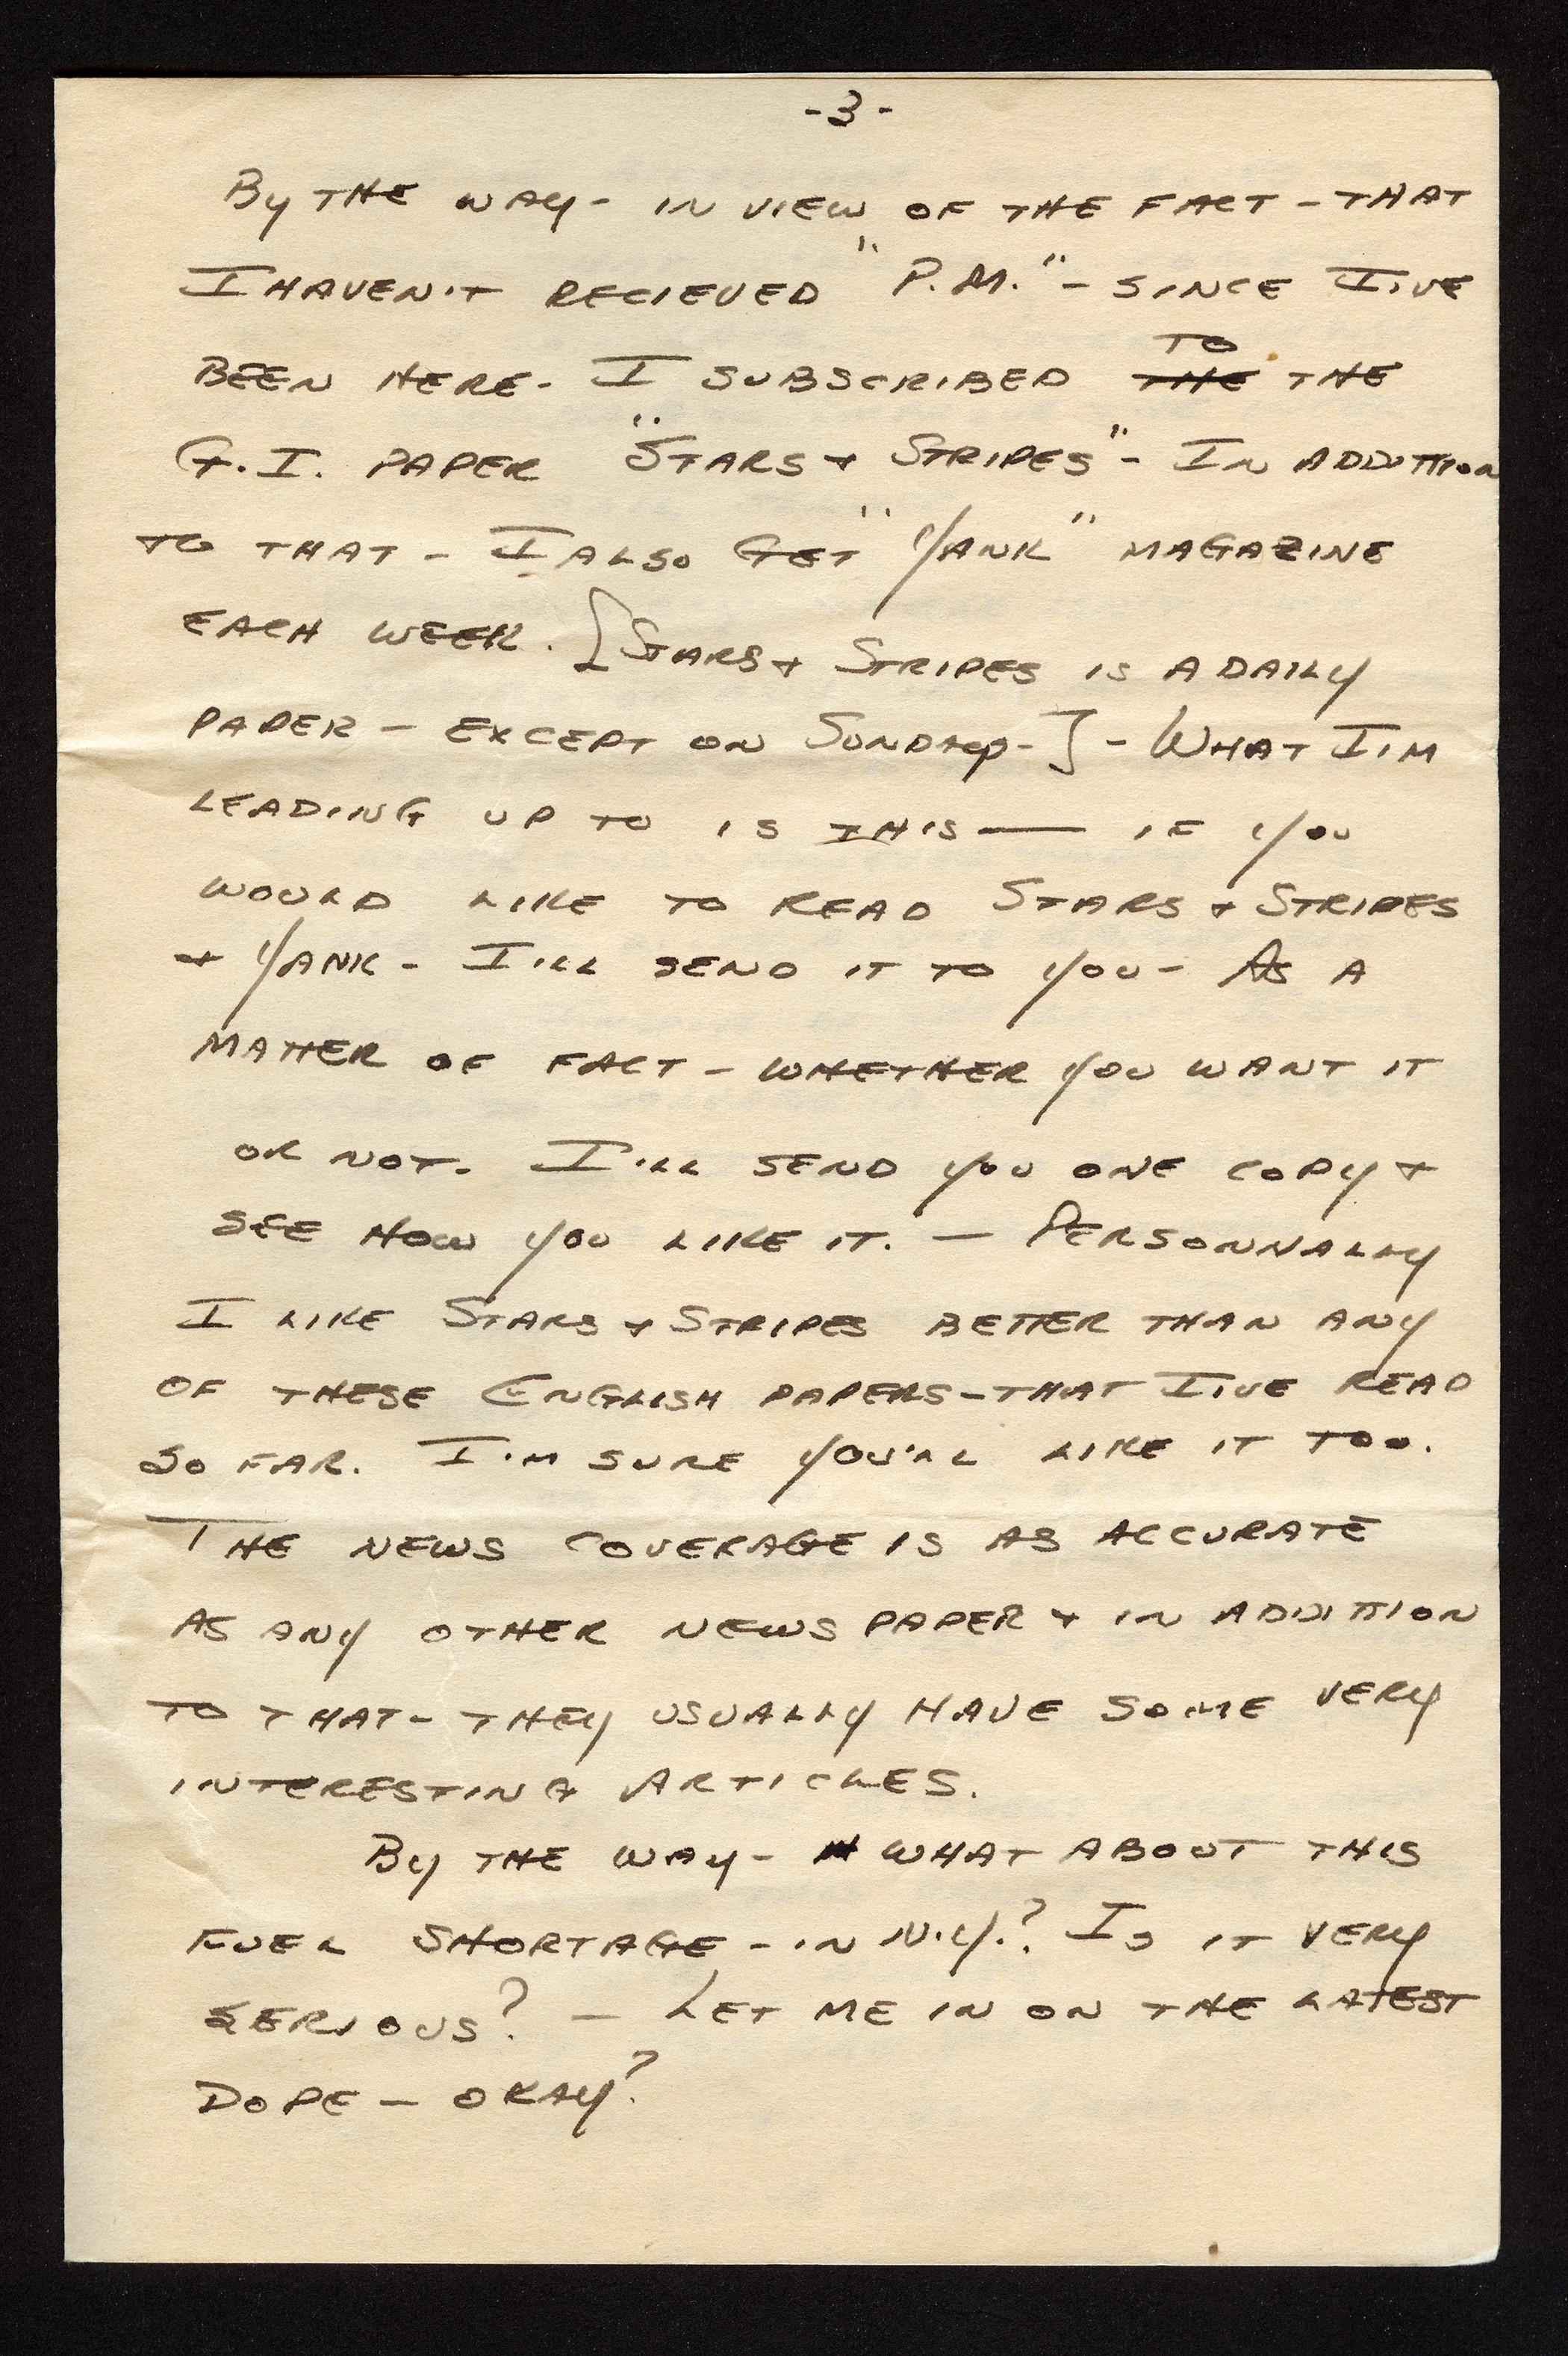 -3-
By THE WAY- IN VIEW OF THE FACT - THAT
I HAVEN'T RECIEVED "P.M." - SINCE I'VE
BEEN HERE- I SUBSCRIBED ~~THE~~ TO THE
G.I. PAPER "STARS & STRIPES" - IN ADDITTION
TO THAT - I ALSO GET "YANK" MAGAZINE
EACH WEEK. [STARS & STRIPES IS A DAILY
PAPER - EXCEPT ON SUNDAY-] - WHAT I'M
LEADING UP TO IS THIS — IF YOU
WOULD LIKE TO READ STARS & STRIPES
& YANK - I'LL SEND IT TO YOU - AS A
MATTER OF FACT - WHETHER YOU WANT IT
OR NOT. I'LL SEND YOU ONE COPY &
SEE HOW YOU LIKE IT. — PERSONNALLY
I LIKE STARS & STRIPES BETTER THAN ANY
OF THESE ENGLISH PAPERS - THAT I'VE READ
SO FAR. I'M SURE YOU'LL LIKE IT TOO.
THE NEWS COVERAGE IS AS ACCURATE
AS ANY OTHER NEWS PAPER & IN ADDITTION
TO THAT - THEY USUALLY HAVE SOME VERY
INTERESTING ARTICLES.
By THE WAY - WHAT ABOUT THIS
FUEL SHORTAGE - IN N.Y.? IS IT VERY
SERIOUS? — LET ME IN ON THE LATEST
DOPE — OKAY?